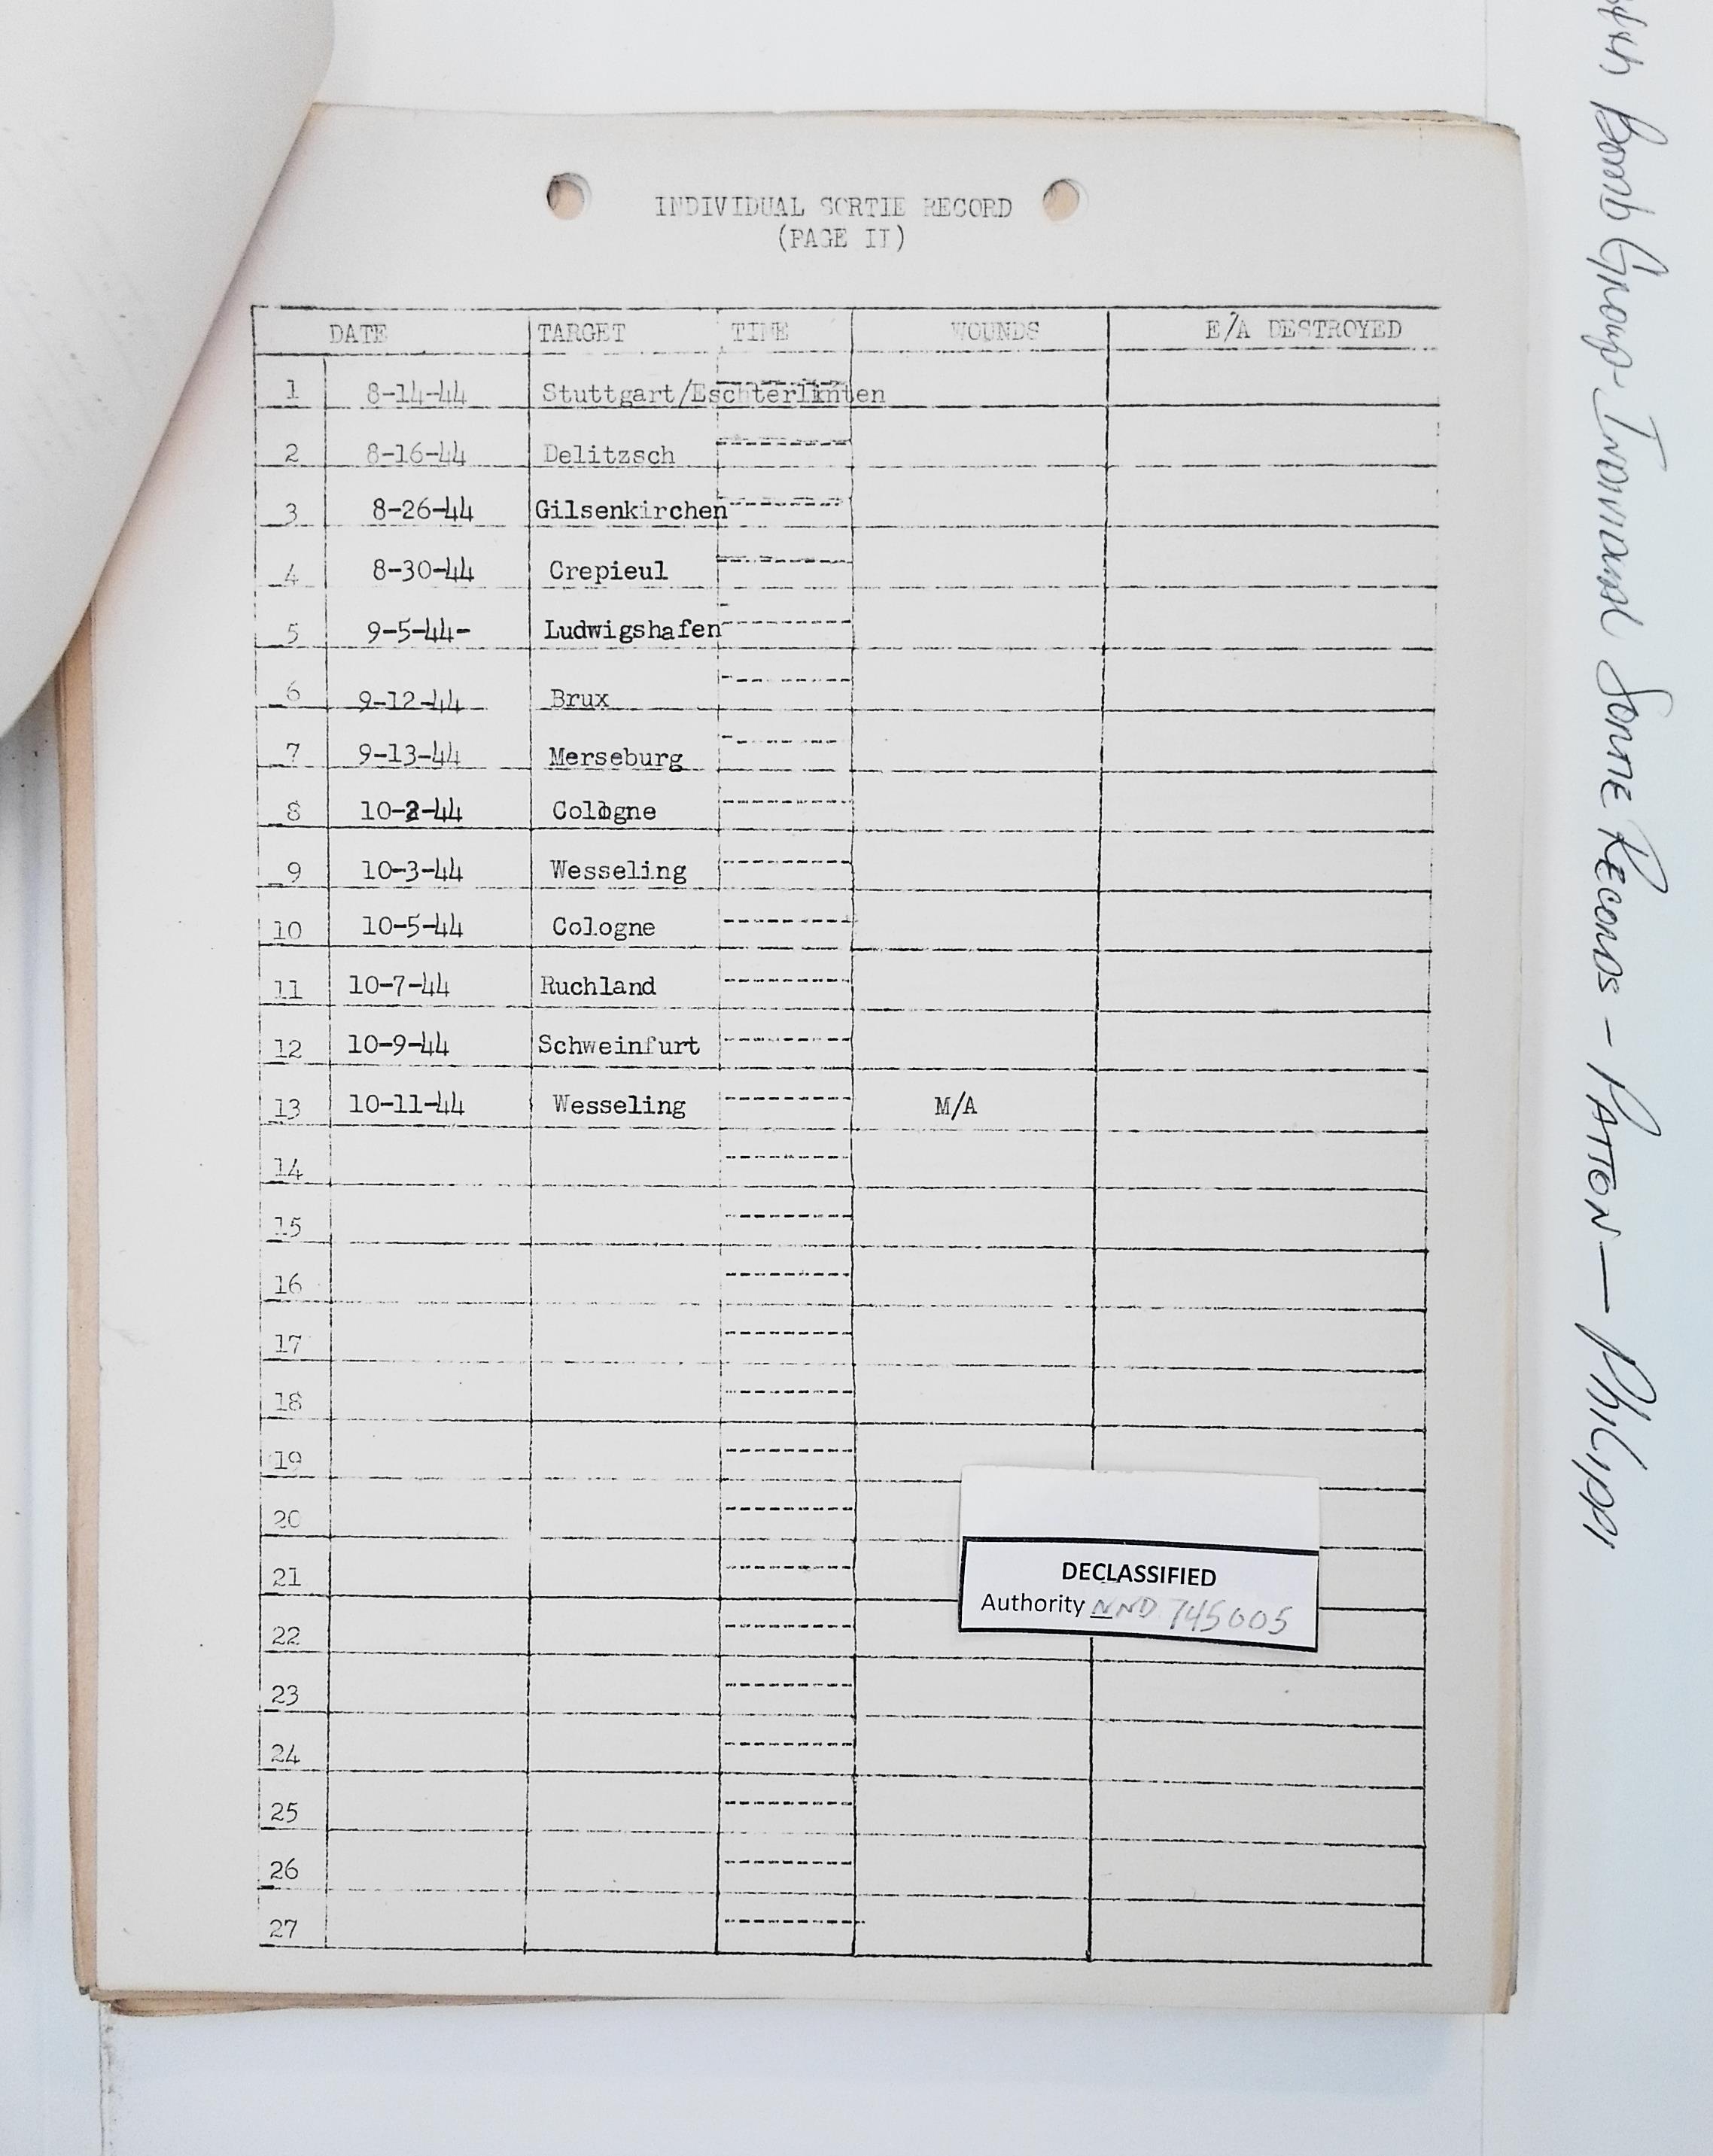 INDIVIDUAL SORTIE RECORD
(PAGE II)
DATE TARGET TIME WOUNDS E/A DESTROYED
1 8-14-44 Stuttgart/Eschterlknten
2 8-16-44 Delitzsch
3 8-26-44 Gilsenkirchen
4 8-30-44 Crepieul
5 9-5-44- Ludwigshafen
6 9-12-44 Brux
7 9-13-44 Merseburg
8 10-2-44 Cologne
9 10-3-44 Wesseling
10 10-5-44 Cologne
11 10-7-44 Ruchland
12 10-9-44 Schweinfurt
13 10-11-44 Wesseling M/A
14
15
16
17
18
19
20
21
22
23
24
25
26
27
DECLASSIFIED
Authority NND 745005
Bomb Group - Individual Sortie Records - Patton — Philippi